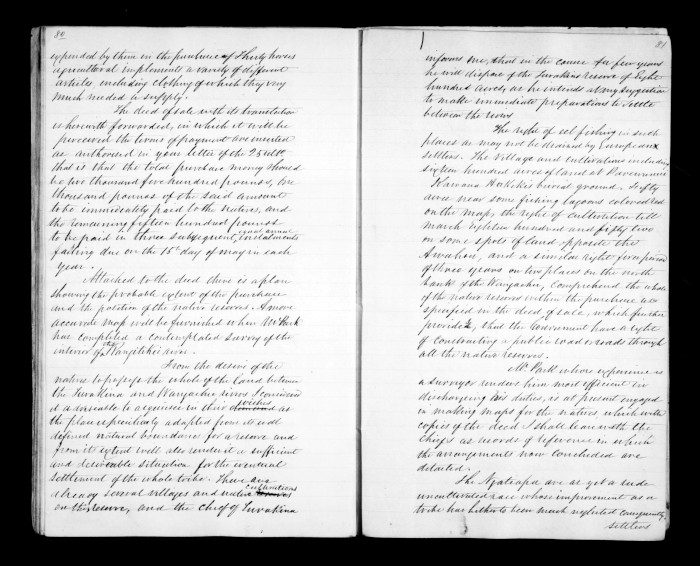 80
expended by them in the purchase of thirty horses
agricultural implements a variety of different
articles, including clothing of which they very
much needed a supply.
The deed of sale with its translation
is herewith forwarded, in which it will be
perceived the terms of payment are inserted
as authorised in your letter of the 25 ulto
that is that the total purchase money should
be two thousand five hundred pounds, one
thousand pounds of the said amount
to be immediately paid to the natives, and
the remaining fifteen hundred pounds
to be paid in three subsequent, equal annual instalments
falling due on the 15th day of may in each
year.
Attached to the deed there is a plan
shewing the probable extent of the purchase
and the position of the native reserves. A more
accurate map will be furnished when Mr Park
has completed a contemplated survey of the
interior of the Rangitiki river.
From the desire of the
natives to possess the whole of the land between
the Turakina and Wangaehu rivers I considered
it advisable to acquiesce in their wishes as
the place peculiarly adapted from its well
defined natural boundaries for a reserve and
from its extent will also render it a sufficient
and desirable situation for the eventual
settlement of the whole tribe. There are
already several villages and native cultivations
on this reserve, and the chief of Turakina
81
informs me, that in the course of a few years
he will dispose of the Turakina reserve of Eight
hundred acres, as he intends at my suggestion
to make immediate preparations to settle
between the rivers
The right of eel fishing in such
places as may not be drained by European
settlers. The Village and cultivations including
sixteen hundred acres of land at Parewanui
Kawana Hakekes burial ground. Fifty
acres near some fishing lagoons colored red
on the map, the right of cultivation till
march Eighteen hundred and fifty two
on some spots of land opposite the
Awahou, and a similar right for a period
of three years on two places on the north
bank of the Wangaehu, comprehend the whole
of the native reserves within the purchase as
specified in the deed of sale, which further
provides, that the Government have a right
of constructing public roads through
all the native reserves.
Mr Park whose experience as
a surveyor renders him most efficient in
discharging his duties, is at present engaged
in making maps for the natives which with
copies of the deed I shall leave with the
chiefs as records of reference in which
the arrangements now concluded are
detailed.
The Ngatiapa are as yet a rude
uncultivated race whose improvement as a
tribe has hitherto been much neglected consequently
settlers